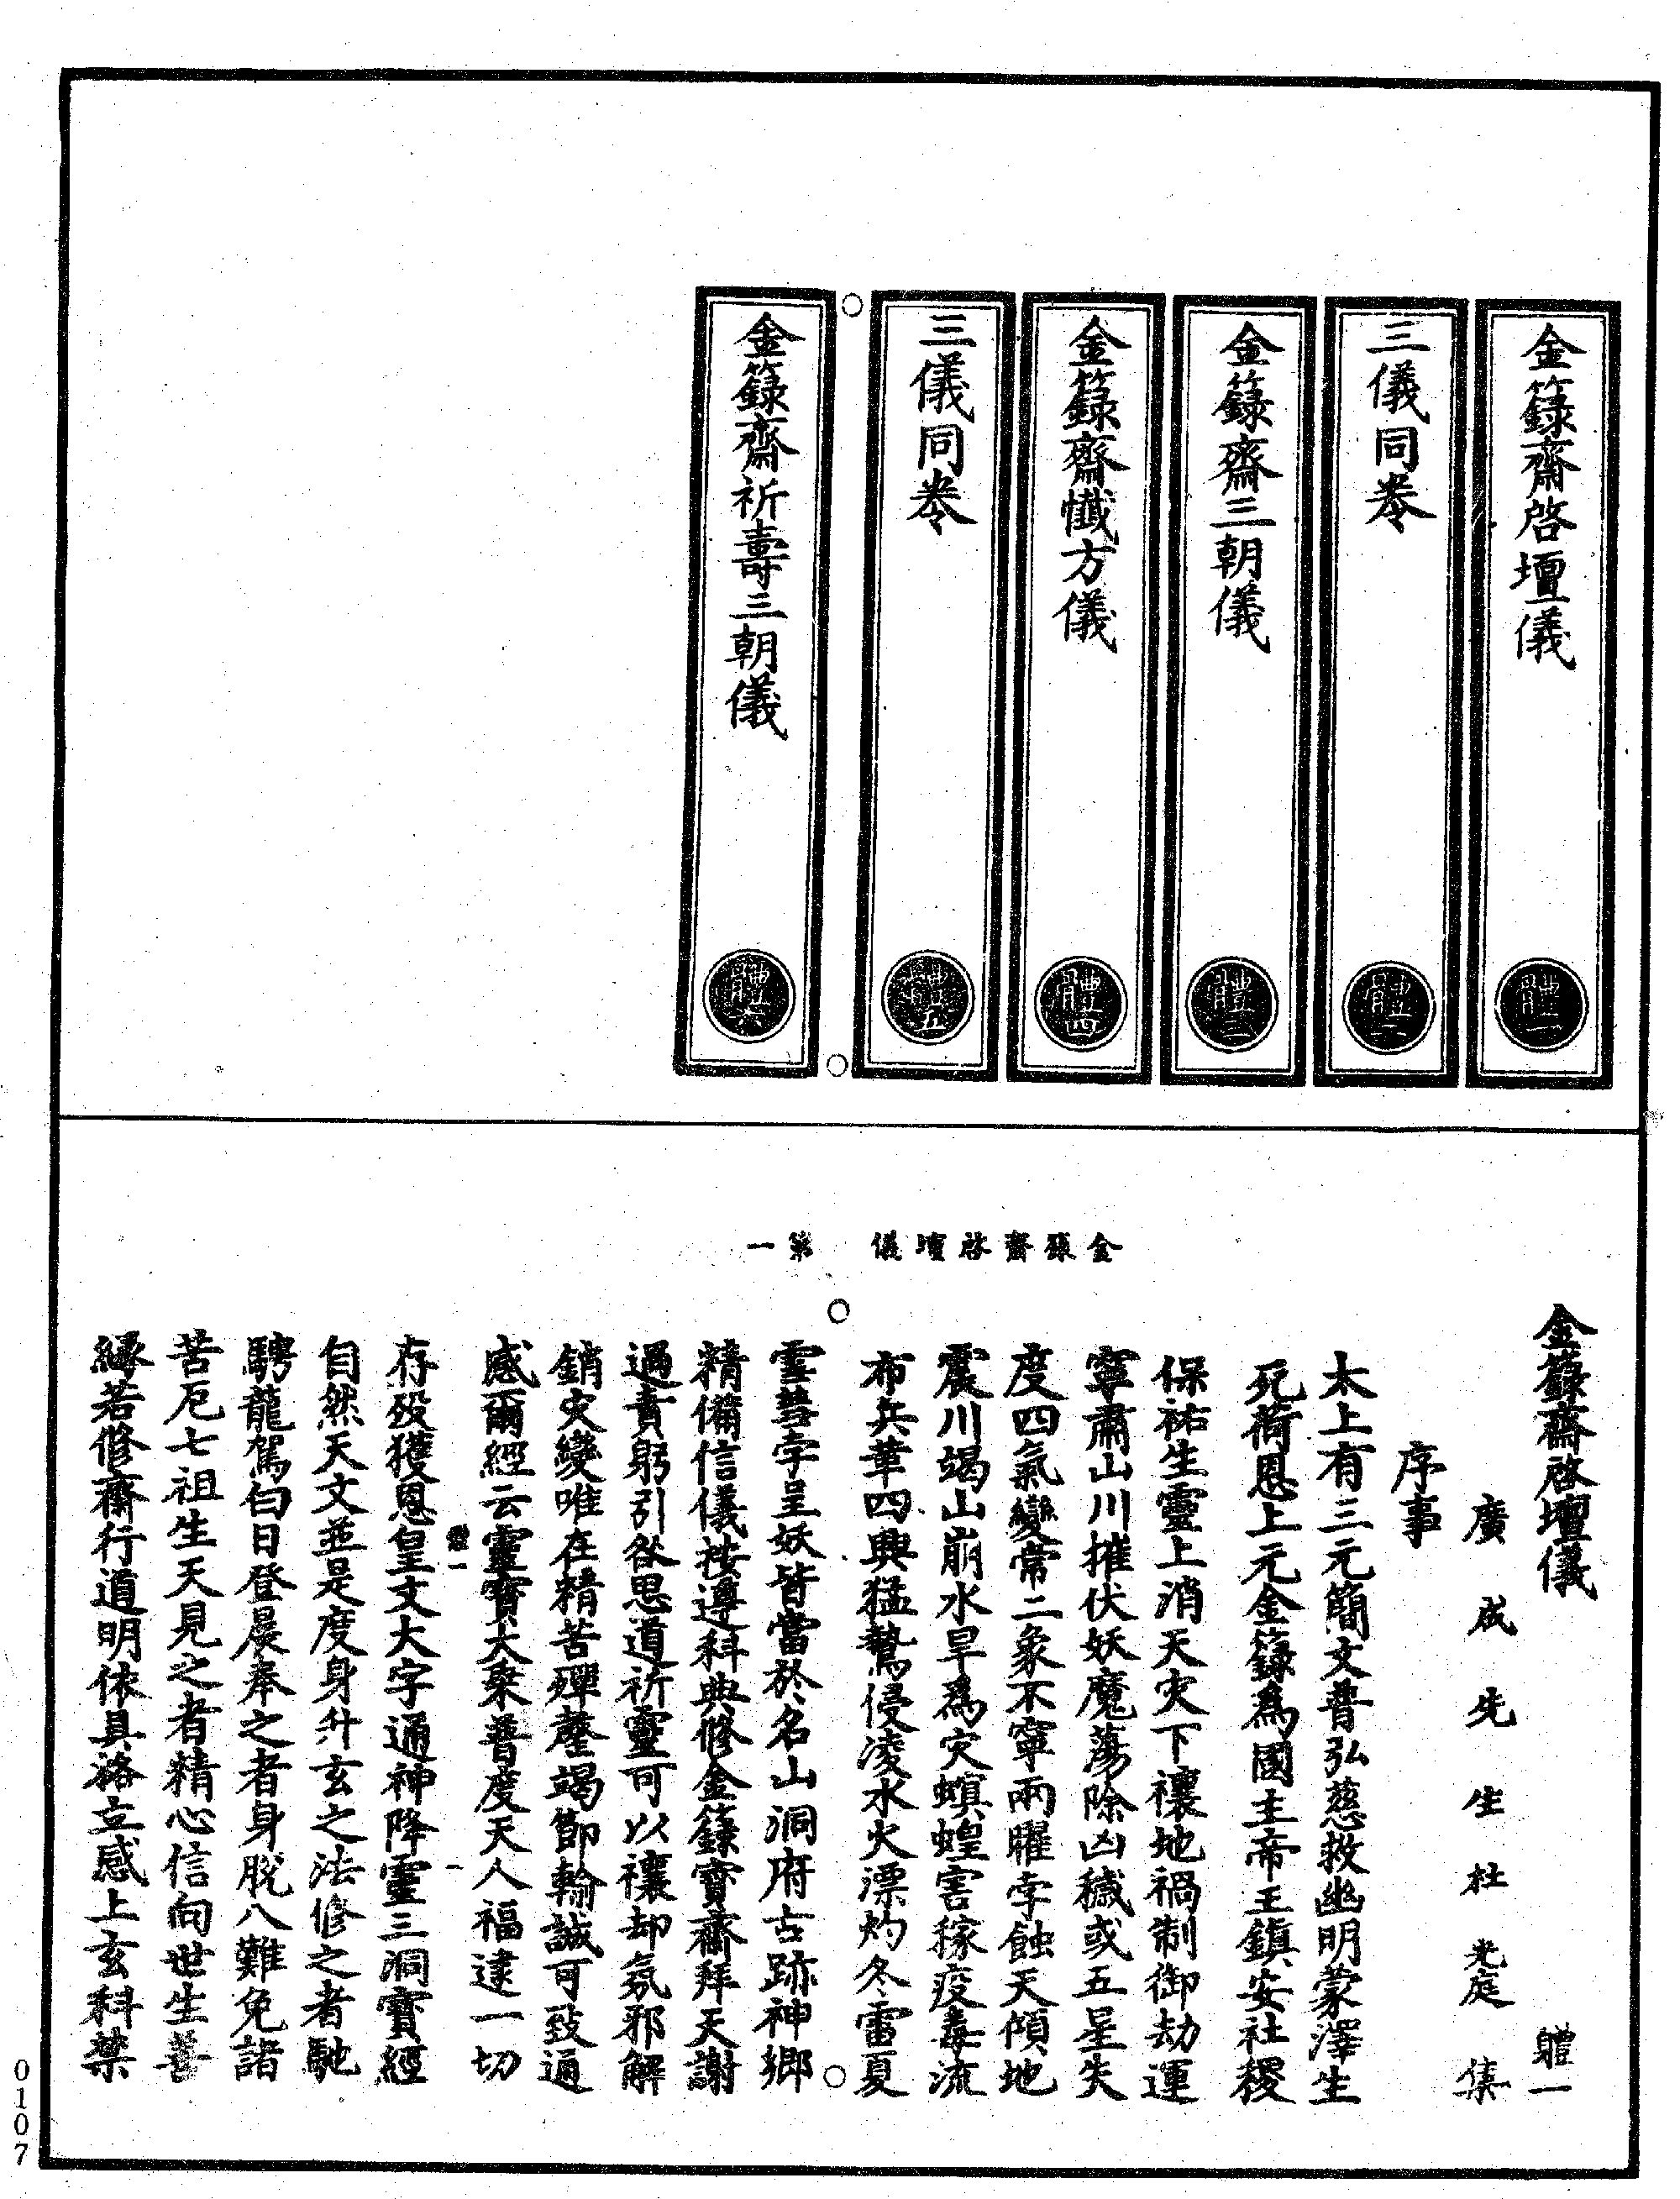 金籙齋啓壇儀 體一
三儀同卷 體二
金籙齋三朝儀 體三
金籙齋懺方儀 體四
三儀同卷 體五
金籙齋祈壽三朝儀 體六
金籙齋啓壇儀 第一
金籙齋啓壇儀 體一
廣成先生杜光庭集
序事
太上有三元簡文普弘慈救幽明蒙澤生
死荷恩上元金籙爲國主帝王鎮安社稷
保祐生靈上消天灾下禳地禍制御劫運
寧肅山川摧伏妖魔蕩除凶穢或五星失
度四氣變常二象不寧兩曜孛蝕天傾地
震川竭山崩水旱爲灾螟蝗害稼疫毒流
布兵革四興猛鷙侵凌水火漂灼冬雷夏
雪彗孛呈妖皆當於名山洞府古跡神鄉
精備信儀按遵科典修金籙寶齋拜天謝
過責躬引咎思道祈靈可以禳却氛邪解
銷灾變唯在精苦殫罄竭節輸誠可致通
感爾經云靈寶大乘普度天人福逮一切
體一 一
存歿獲恩皇文大字通神降靈三洞寶經
自然天文並是度身升玄之法修之者馳
騁龍駕白日登晨奉之者身脫八難免諸
苦厄七祖生天見之者精心信向世生善
緣若修齋行道明依具格立感上玄科禁
0107